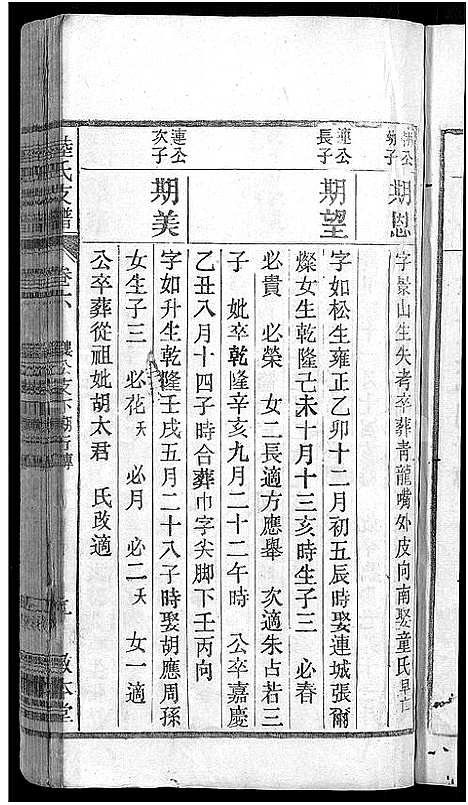 期恩
字景山生失考卒葬青龍嘴外皮向南娶童氏早亡
連公
長子
期望
字如松生雍正乙卯十二月初五辰時娶連城張爾
燦女生乾隆己未十月十三亥時生子三　必春
必貴　必榮　女二長適方應舉　次適朱占若三
子　妣卒乾隆辛亥九月二十二午時　公卒嘉慶
乙丑八月十四子時合葬巾字尖脚下壬丙向
連公
次子
期美
字如升生乾隆壬戌五月二十八子時娶胡應周孫
女生子三　必花夭　必月　必二夭　女一適
公卒葬從祖妣胡太君　氏改適
陸氏支譜
卷六
敬本堂